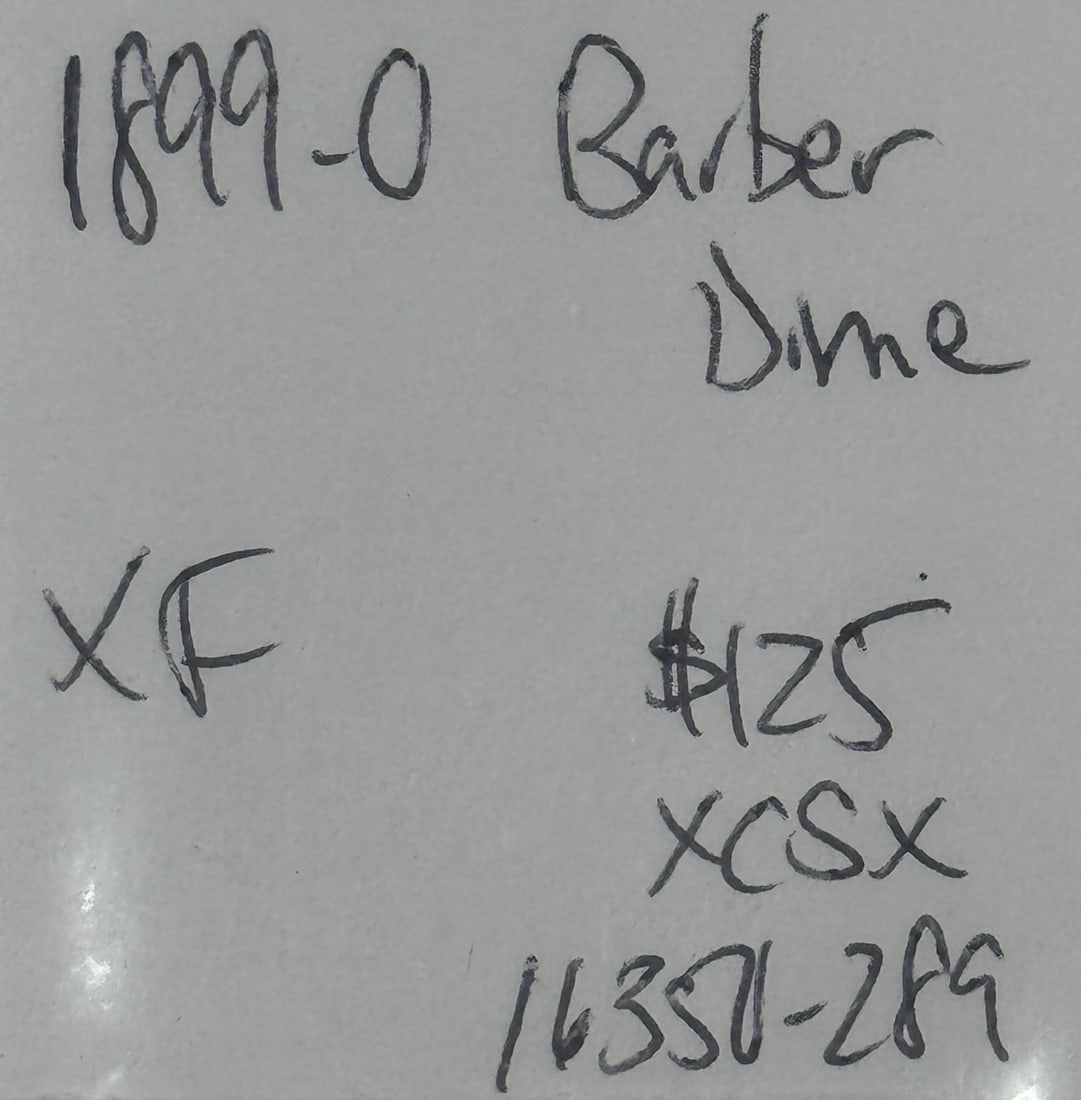 1899-O Barber
Dime
XF
$125
XCSX
16350-289